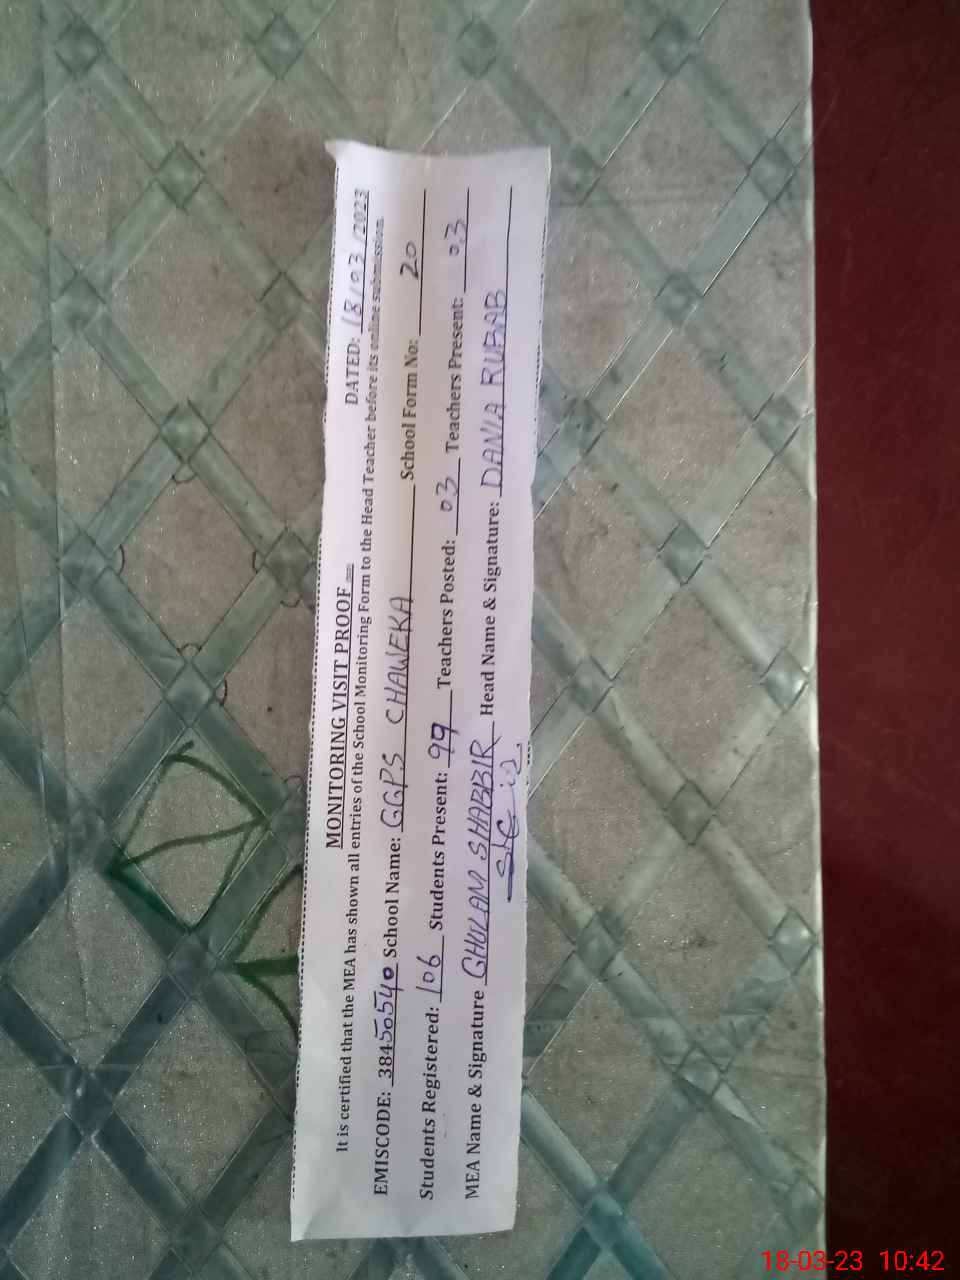 MONITORING VISIT PROOF
DATED: 18/03/2023
It is certified that the MEA has shown all entries of the School Monitoring Form to the Head Teacher before its online submission.
EMISCODE: 38450540 School Name: GGPS CHAWEKA School Form No: 20
Students Registered: 106 Students Present: 99 Teachers Posted: 03 Teachers Present: 03
MEA Name & Signature GHULAM SHABBIR Head Name & Signature: DANIA RUBAB
18-03-23 10:42